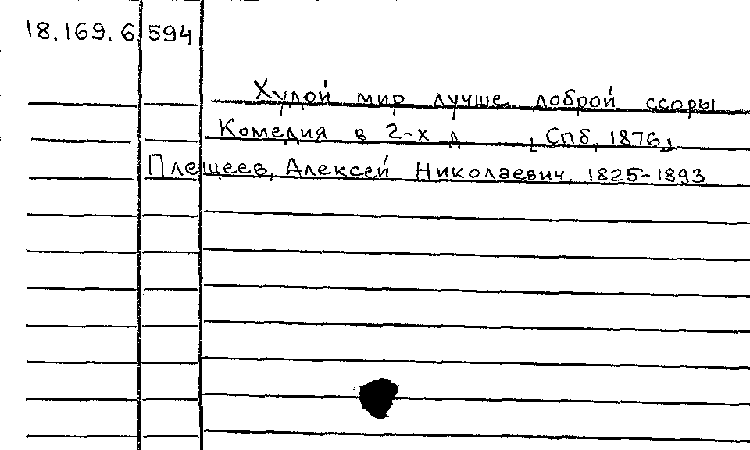 18.169.6 594
Худой мир лучше доброй ссоры
Комедия в 2-х д [Спб, 1876]
Плещеев, Алексей Николаевич, 1825-1893